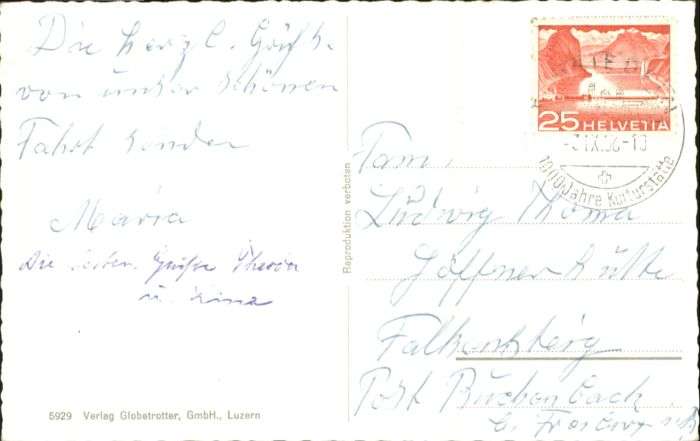 Die herzl. Grüße
von unser schönen
Fahrt senden
Maria
Die besten Grüße Theresa
u. Lina
5929 Verlag Globetrotter, GmbH., Luzern
Reproduktion verboten
25 HELVETIA
1000 Jahre Kulturstätte
Fam.
Ludwig Thoma
Höffnerhütte
Falkensteig
Post Buchenbach
bei Freiburg